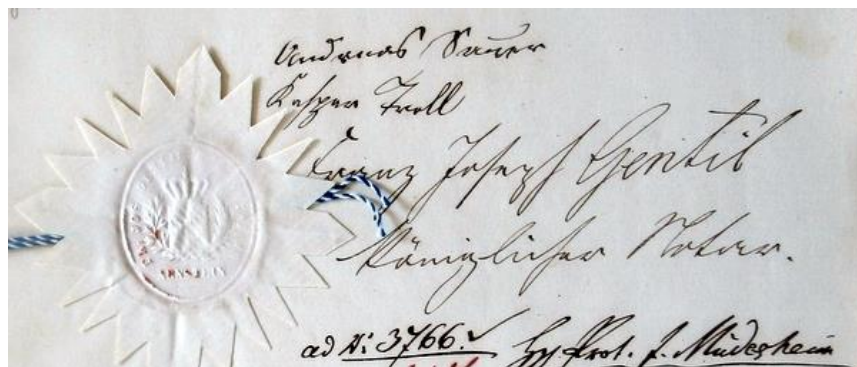 Andreas Sauer
Kaspar Troll
Franz Joseph Gentil
königlicher Notar.
ad N: 3766. Hyp Prot. f. Müdesheim
ARNSTEIN